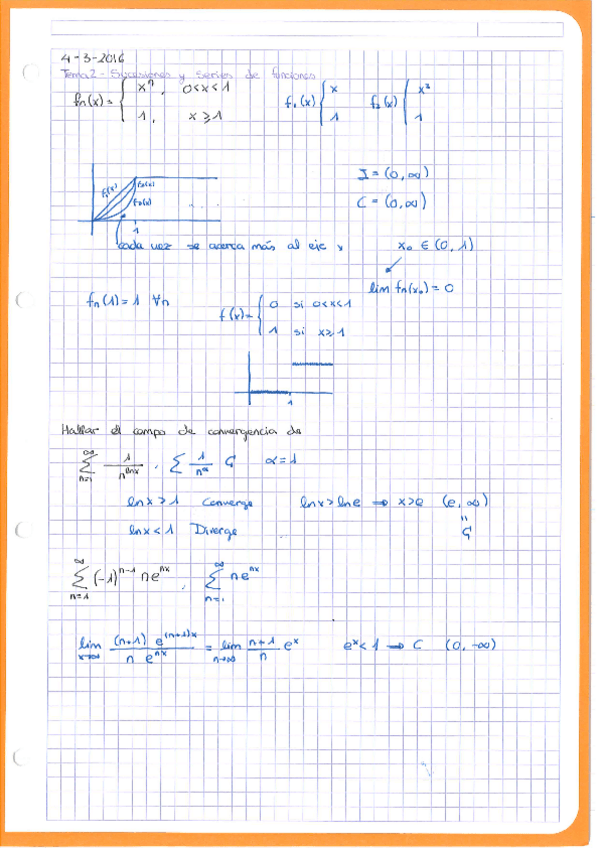 4-3-2016
Tema 2 - Sucesiones y series de funciones
fn(x) = { x^n, 0<x<1
1, x ≥ 1
f₁(x) { x
1
f₂(x) { x²
1
I = (0, ∞)
C = (0, ∞)
f₁(x) f₂(x)
f₃(x) ...
1
cada vez se acerca más al eje x
x₀ ∈ (0, 1)
lim fn(x₀) = 0
fn(1) = 1 ∀n
f(x) = { 0 si 0<x<1
1 si x≥1
1
Hallar el campo de convergencia de
∞ Σ n=1 1/n^lnx , Σ 1/n^α α=1
lnx > 1 Converge lnx > lne ⇒ x>e (e, ∞)
lnx < 1 Diverge
∞ Σ n=1 (-1)^n-1 n e^nx , ∞ Σ n=1 n e^nx
lim x→∞ (n+1) e^(n+1)x / n e^nx = lim n→∞ n+1/n e^x e^x < 1 → C (0, -∞)